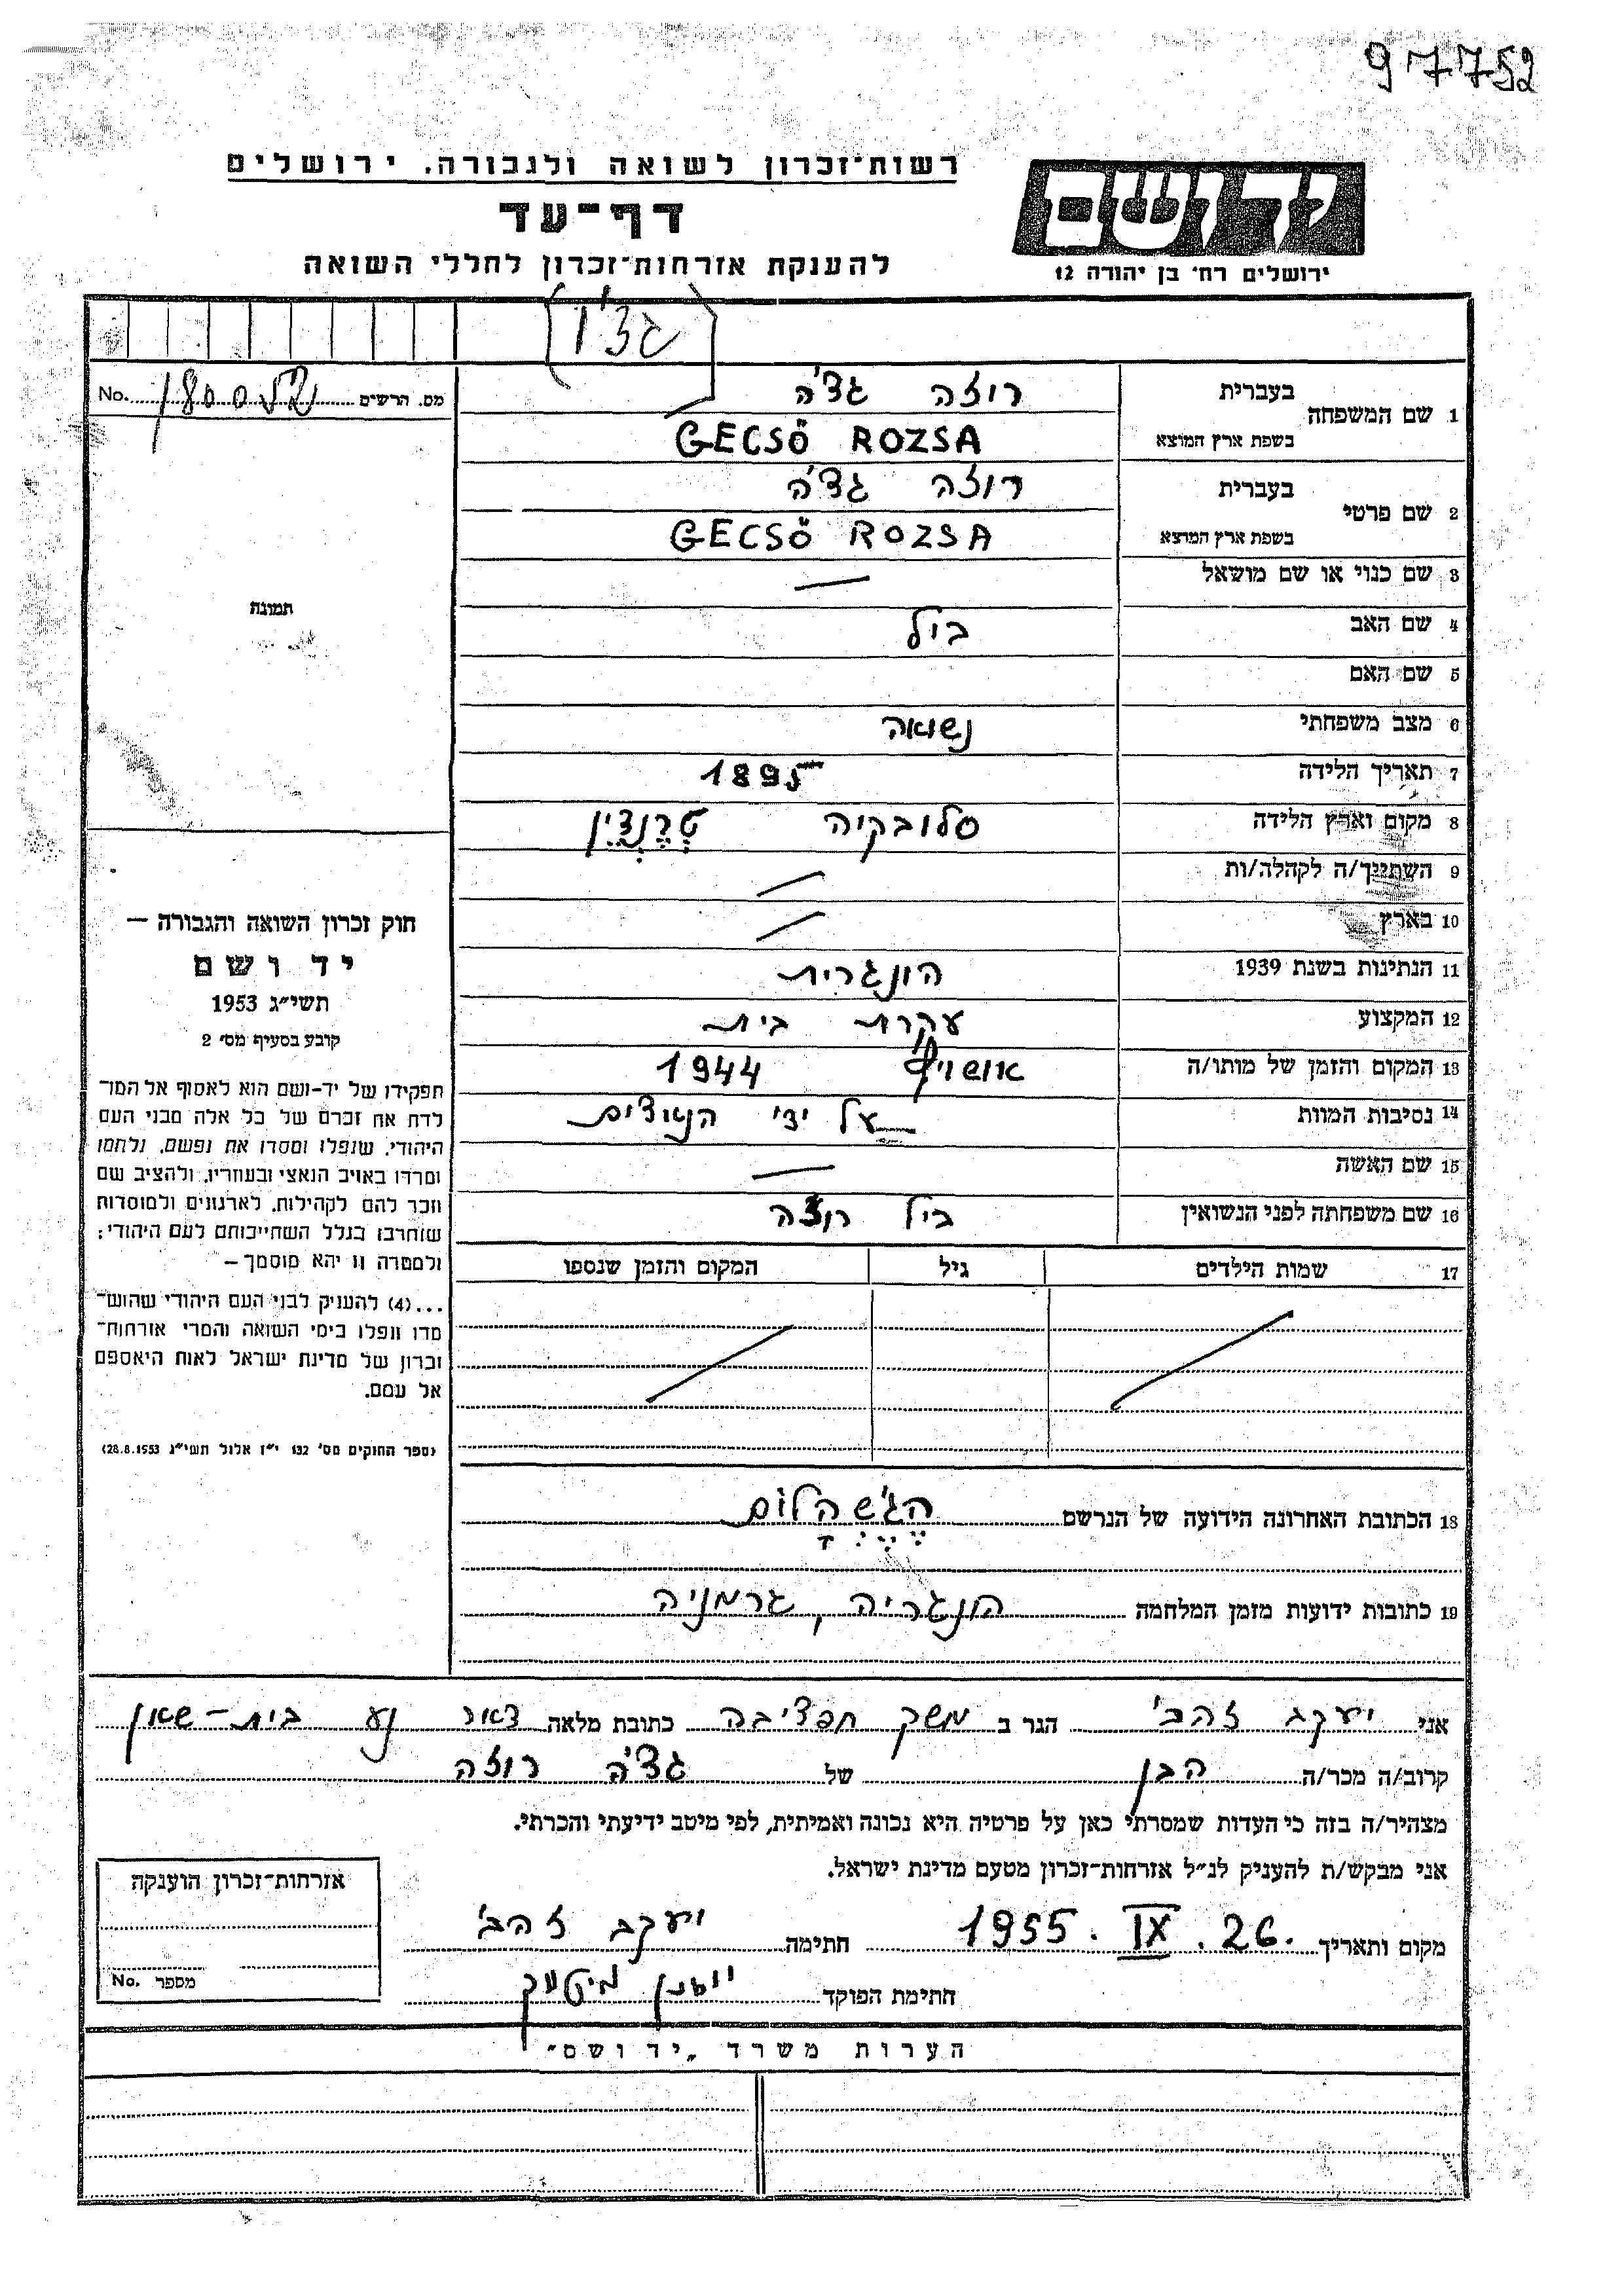 97752
רשות־זכרון לשואה ולגבורה. ירושלים
דף־עד
להענקת אזרחות־זכרון לחללי השואה
יד ושם
ירושלים רח׳ בן יהודה 12
גצ'ו
מס. הרשים No.
1 שם המשפחה בעברית רוזה גצ'ה
בשפת ארץ המוצא GECSŐ ROZSA
2 שם פרטי בעברית רוזה גצ'ה
בשפת ארץ המוצא GECSŐ ROZSA
3 שם כנוי או שם מושאל —
4 שם האב ביל
5 שם האם
6 מצב משפחתי נשואה
7 תאריך הלידה 1895
8 מקום וארץ הלידה סלובקיה טְרֶנְצִ'ין
9 השתייך/ה לקהלה/ות
10 בארץ
11 הנתינות בשנת 1939 הונגרית
12 המקצוע עקרת בית
13 המקום והזמן של מותו/ה אושויץ 1944
14 נסיבות המוות על ידי הנאצים
15 שם האשה —
16 שם משפחתה לפני הנשואין ביל רוזה
17 שמות הילדים גיל המקום והזמן שנספו
18 הכתובת האחרונה הידועה של הנרשם
19 כתובות ידועות מזמן המלחמה הונגריה, גרמניה
תמונה
חוק זכרון השואה והגבורה —
יד ושם
תשי״ג 1953
קובע בסעיף מס׳ 2
תפקידו של יד-ושם הוא לאסוף אל המו־
לדת את זכרם של כל אלה מבני העם
היהודי, שנפלו ומסרו את נפשם, נלחמו
ומרדו באויב הנאצי ובעוזריו, ולהציב שם
וזכר להם לקהילות, לארגונים ולמוסדות
שוחרבו בגלל השתייכותם לעם היהודי;
ולמטרה זו יהא מוסמך —
...(4) להעניק לבני העם היהודי שהוש־
מדו ונפלו בימי השואה והמרי אזרחות־
זכרון של מדינת ישראל לאות היאספם
אל עמם.
(ספר החוקים מס׳ 132 י״ז אלול תשי״ג 28.8.1953)
אני יעקב זהבי הגר ב משק חפציבה כתובת מלאה דאר נע בית-שאן
קרוב/ה מכר/ה הבן של גצ'ה רוזה
מצהיר/ה בזה כי העדות שמסרתי כאן על פרטיה היא נכונה ואמיתית, לפי מיטב ידיעתי והכרתי.
אני מבקש/ת להעניק לנ״ל אזרחות־זכרון מטעם מדינת ישראל.
מקום ותאריך 26. IX. 1955 חתימה יעקב זהבי
חתימת הפוקד
אזרחות־זכרון הוענקה
מספר No.
הערות משרד „יד ושם״